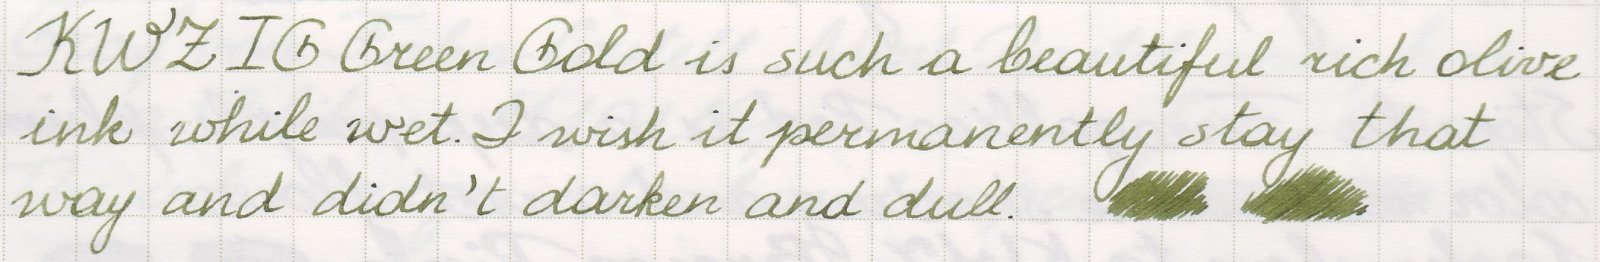 KWZ IG Green Gold is such a beautiful rich olive
ink while wet. I wish it permanently stay that
way and didn't darken and dull.